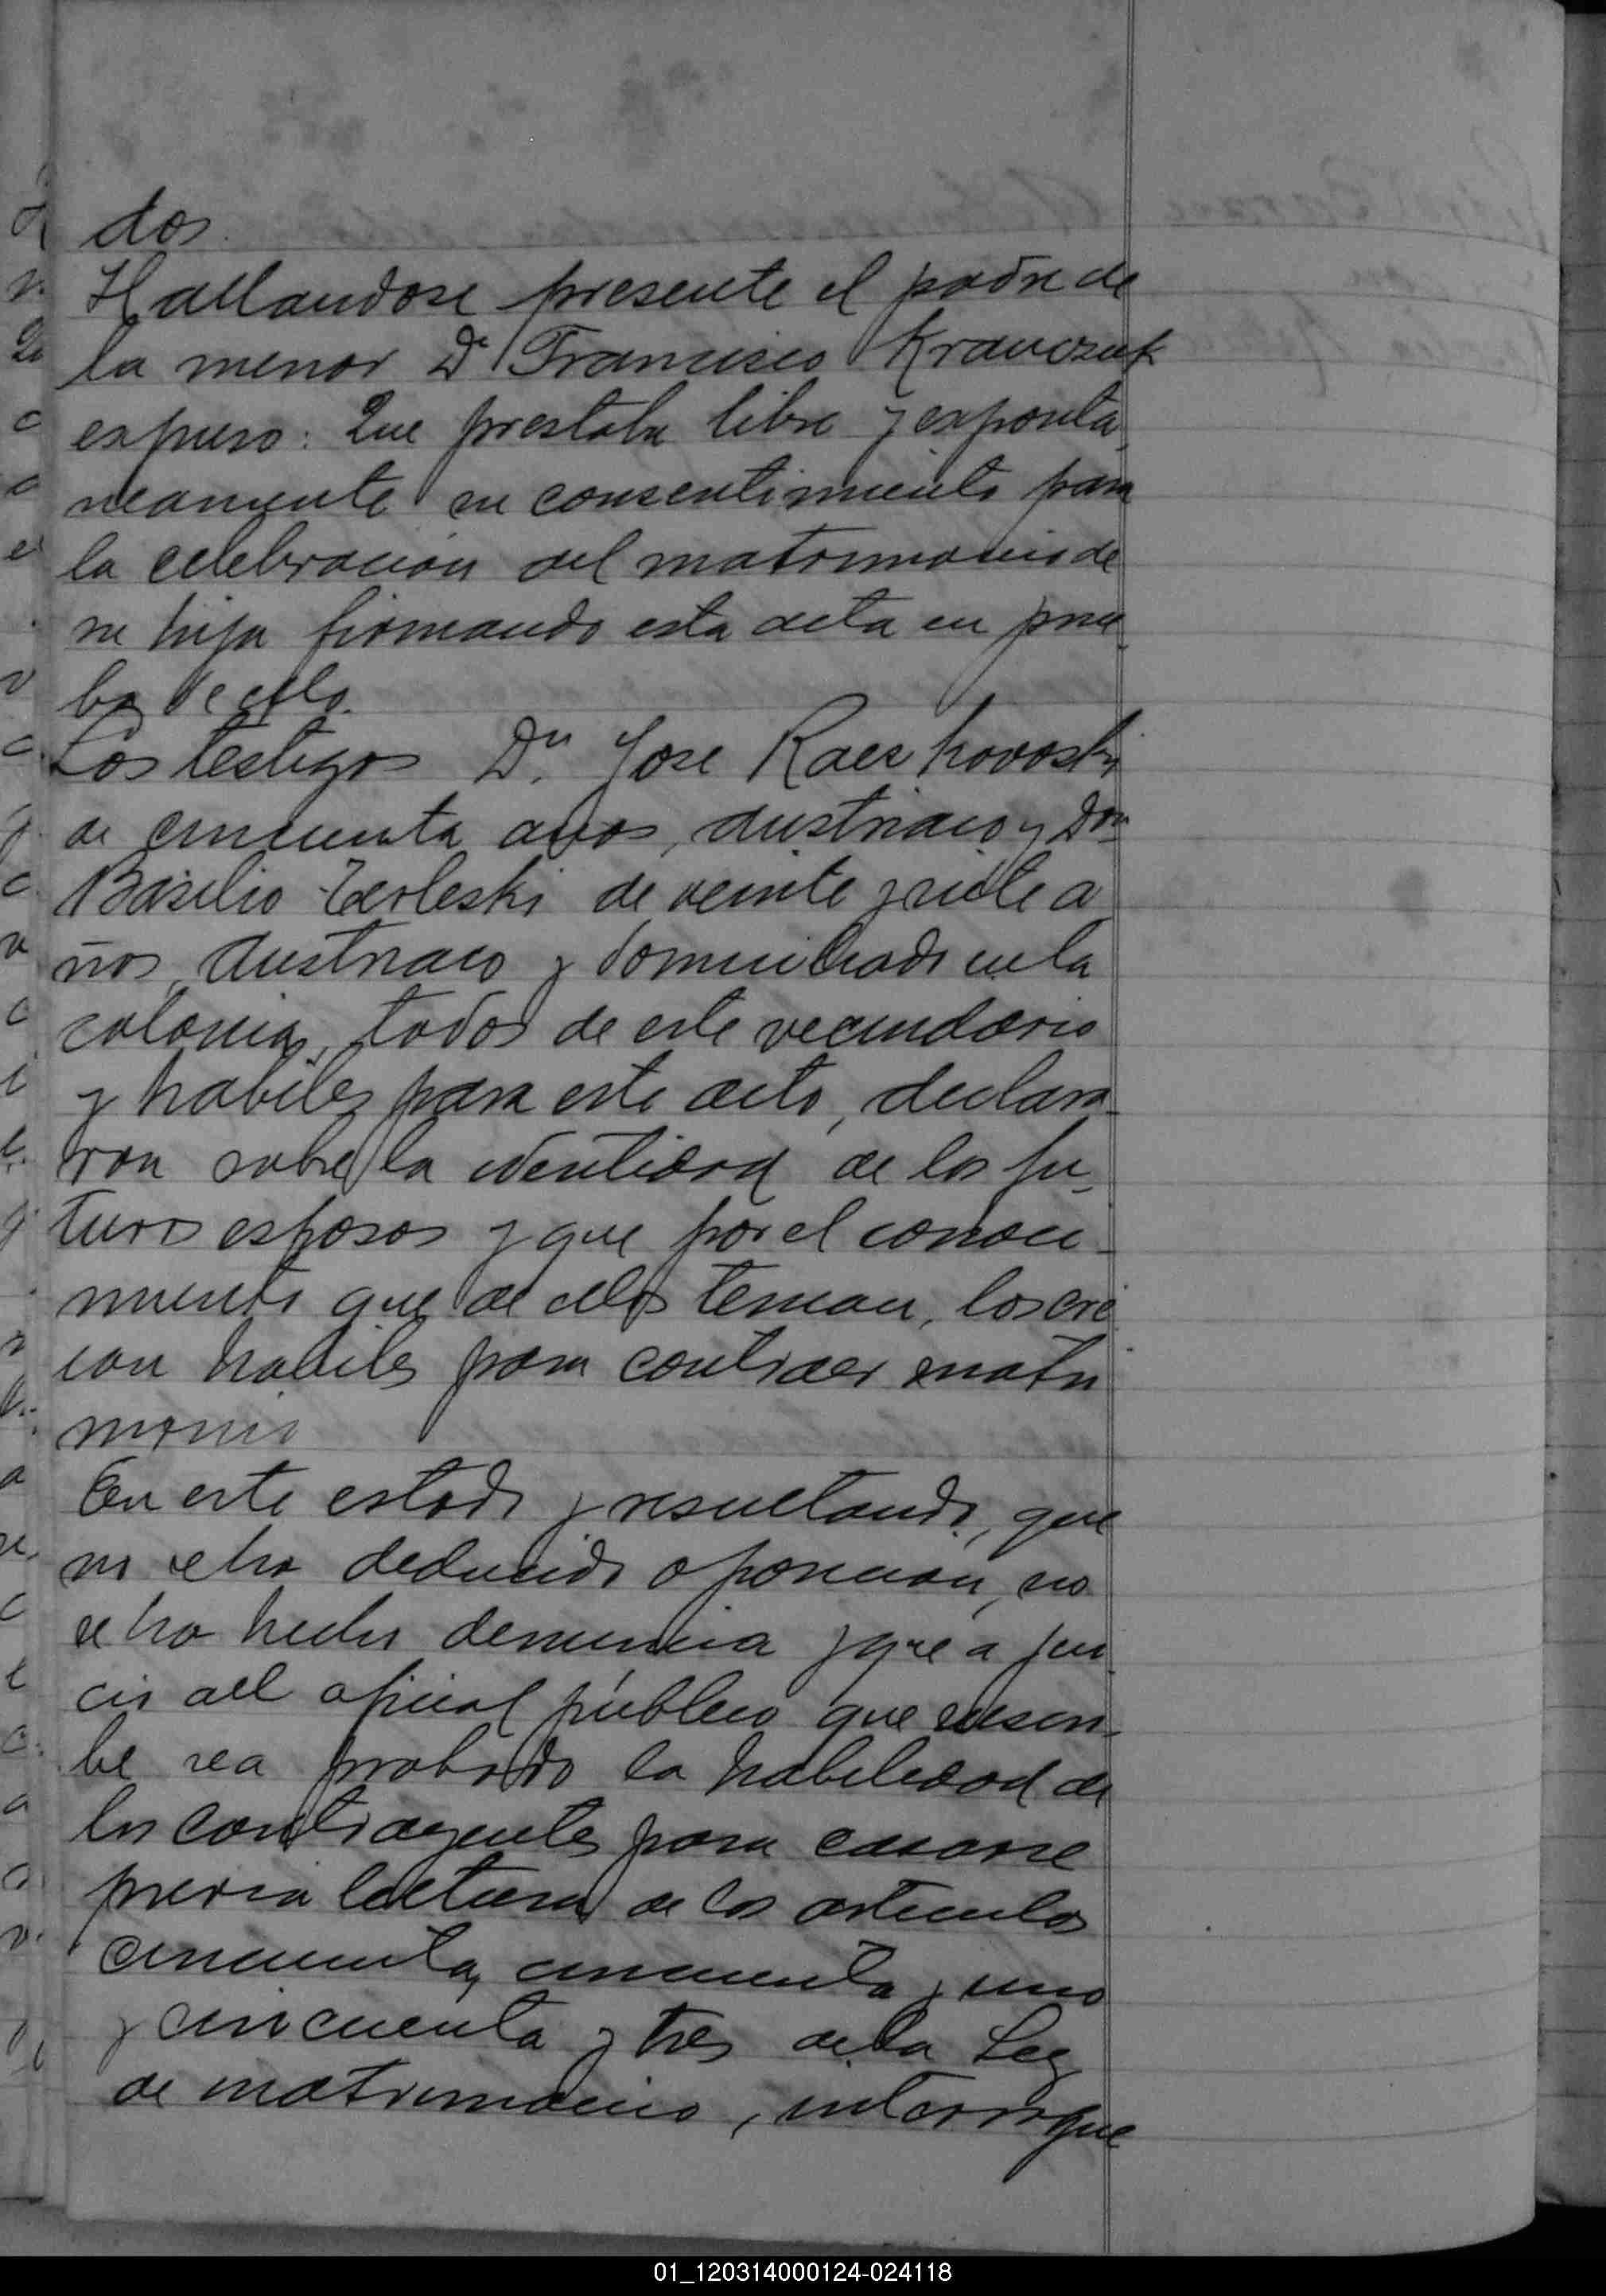 dos.
Hallandose presente el padre de
la menor Dn Francisco Kravczuk
expuso: Que prestaba libre y esponta
neamente su consentimiento para
la celebracion del matrimonio de
su hija firmando esta acta en prue
ba de ello.
Los testigos Dn. Jose Raczkovoski
de cincuenta años, austriaco y Don
Basilio Terleski de veinte y siete a
ños, Austriaco y domiciliado en la
colonia, todos de este vecindario
y habiles para este acto, declara-
ron sobre la identidad de los fu-
turos esposos y que por el conoci-
miento que de ellos tenian, los cre
ian habiles para contraer matri
monio
En este estado y resultando, que
no se ha deducido oposicion, no
se ha hecho denuncia y que a jui
cio del oficial público que suscri-
be sea probado la habilidad de
los contrayentes para casarse
previa lectura de los articulos
cincuenta, cincuenta y uno
y cincuenta y tres de la Ley
de matrimonio, interrogue
01_120314000124-024118